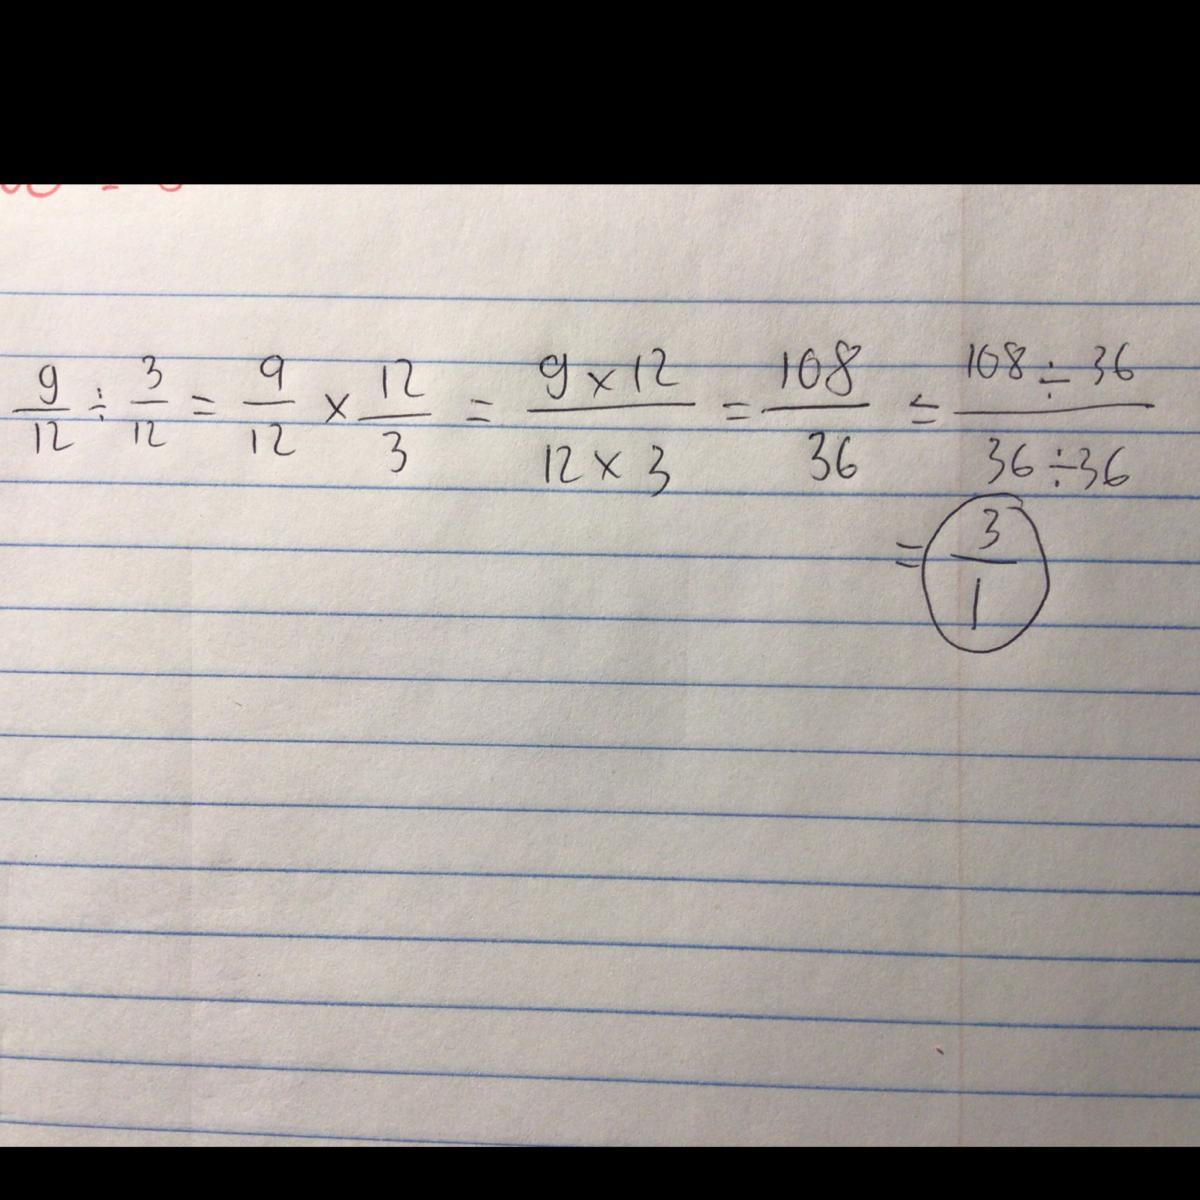 9/12 ÷ 3/12 = 9/12 × 12/3 = 9 × 12/12 × 3 = 108/36 = 108 ÷ 36/36 ÷ 36
= 3/1